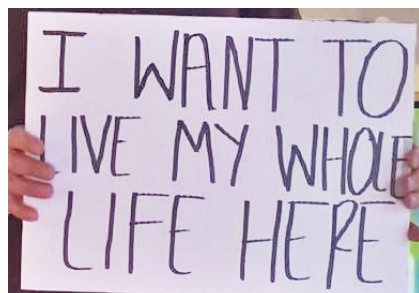 I WANT TO
LIVE MY WHOLE
LIFE HERE